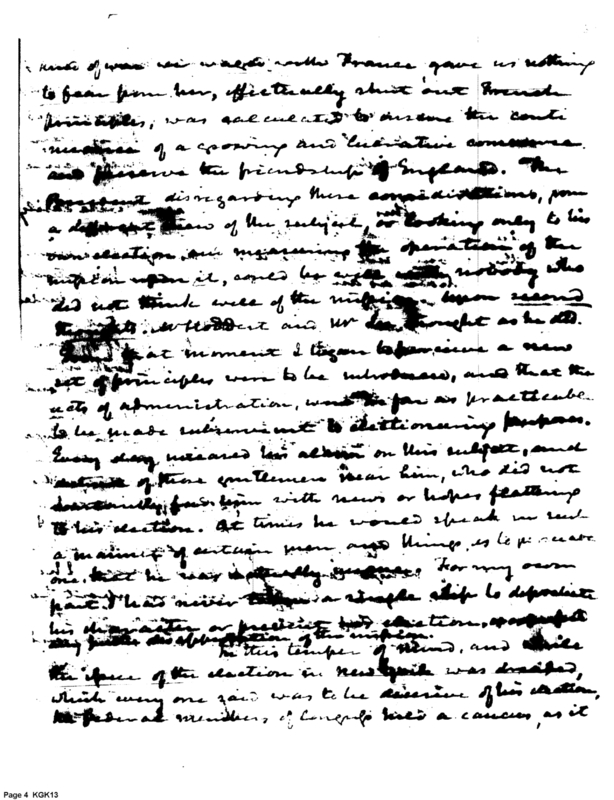 of war we waged with France gave us nothing
to fear from her, effectually shut out French
principles, was calculated to insure the conti
nuance of a growing and lucrative commerce
and preserve the friendship of England. The
President disregarding these considerations, from
a different view of the subject, or looking only to his
own election, and measuring the operation of the
mission upon it, could be with nobody who
did not think well of the mission. Upon second
thoughts. Mr Stoddert and Mr Lee, thought as he did.
From that moment I began to perceive a new
set of principles were to be introduced, and that the
acts of administration, were as far as practicable
to be made subservient to electioneering purposes.
Every day increased his alarm on this subject, and
distrust of those gentlemen near him, who did not
constantly feed him with news or hopes flattering
to his election. At times he would speak in such
a manner of certain men and things, as to persuade
one, that he was For my own
part I had never taken a single step to depreciate
his character or prevent his election, or
my disapprobation of the mission.
In this temper of mind, and while
the issue of the election in New York was decided,
which every one said was to be decisive of his election,
the federal members of Congress held a caucus, as it
Page 4 KGK13